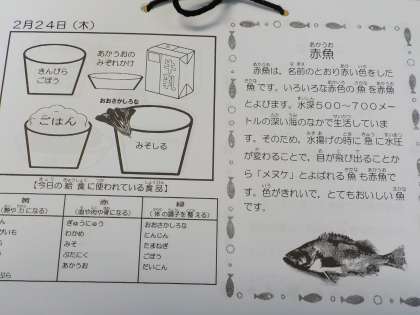 2月24日（木）
きんぴら
ごぼう
あかうおの
みぞれかけ
ごはん
おおさかしろな
みそしる
【今日の給食に使われている食品】
黄 赤 緑
（熱や力になる） （血や肉や骨になる） （体の調子を整える）
ぎゅうにゅう おおさかしろな
わかめ にんじん
みそ たまねぎ
ぶたにく ごぼう
あかうお だいこん
あかうお
赤魚
赤魚は、名前のとおり赤い色をした
魚です。いろいろな赤色の魚を赤魚
とよびます。水深500～700メー
トルの深い海のなかで生活していま
す。そのため、水揚げの時に急に水圧
が変わることで、目が飛び出ることか
ら「メヌケ」とよばれる魚も赤魚で
す。色がきれいで、とてもおいしい魚
です。